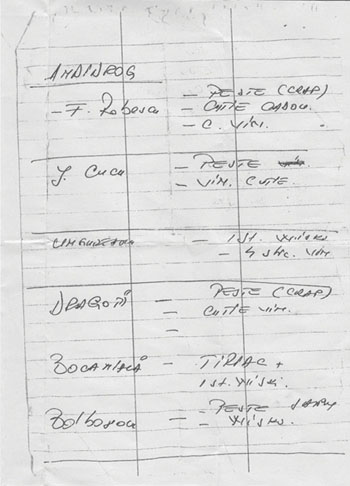 ANTIDROG
- F. Robescu - PESTE (CRAP)
- CUTIE CADOU.
- C. VIN.
J. Cucu - PESTE
- VIN. CUTIE.
- 1 ST. WISKI
- 4 stic. VIN
DRAGOMI - PESTE (CRAP)
CUTIE VIN.
-
BOCANIALĂ - TIRIAC +
1 st. WISKI.
Bolbosu - PESTE
- WISKI.